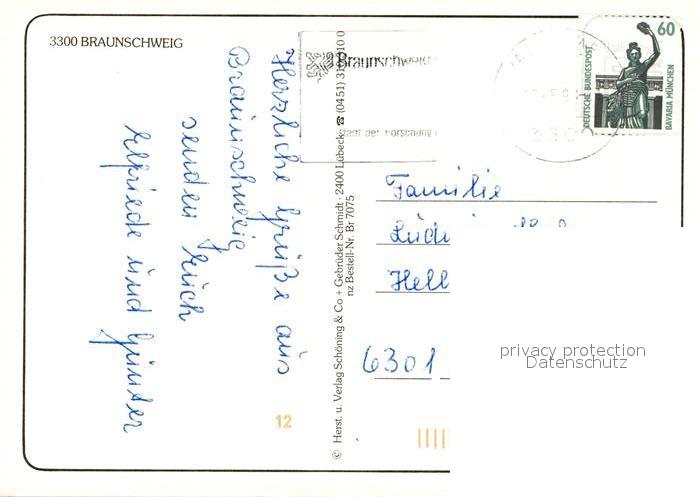 3300 BRAUNSCHWEIG
Herzliche Grüße aus
Braunschweig
senden Euch
Elfriede und Günter
Braunschweig
Stadt der Forschung
60
DEUTSCHE BUNDESPOST
BAVARIA MÜNCHEN
© Herst. u. Verlag Schöning & Co + Gebrüder Schmidt · 2400 Lübeck ☎ (0451) 31
nz Bestell-Nr. Br 7075
Familie
6301
12
privacy protection
Datenschutz